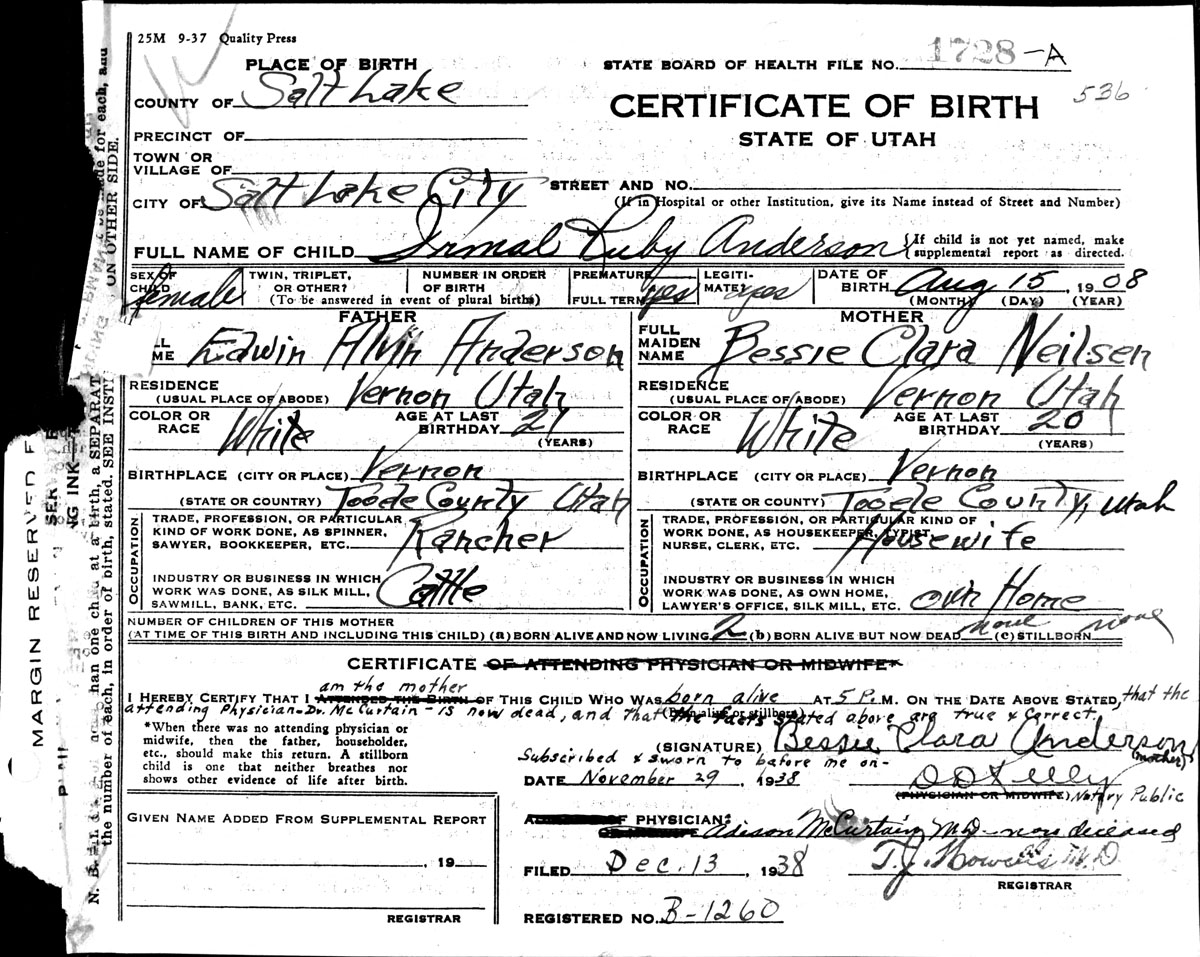 25M 9-37 Quality Press
PLACE OF BIRTH
STATE BOARD OF HEALTH FILE NO. 1728-A
COUNTY OF Salt Lake
CERTIFICATE OF BIRTH
536
STATE OF UTAH
PRECINCT OF
TOWN OR
VILLAGE OF
CITY OF Salt Lake City
STREET AND NO.
(If in Hospital or other Institution, give its Name instead of Street and Number)
FULL NAME OF CHILD Irmal Ruby Anderson {If child is not yet named, make
supplemental report as directed.
SEX OF
CHILD female
TWIN, TRIPLET,
OR OTHER?
NUMBER IN ORDER
OF BIRTH
(To be answered in event of plural births)
PREMATURE
FULL TERM yes
LEGITI-
MATE? yes
DATE OF
BIRTH Aug 15, 1908
(MONTH) (DAY) (YEAR)
FATHER
Edwin Alvin Anderson
RESIDENCE
(USUAL PLACE OF ABODE) Vernon Utah
COLOR OR
RACE White
AGE AT LAST
BIRTHDAY 21
(YEARS)
BIRTHPLACE (CITY OR PLACE) Vernon
(STATE OR COUNTRY) Tooele County Utah
OCCUPATION
TRADE, PROFESSION, OR PARTICULAR
KIND OF WORK DONE, AS SPINNER,
SAWYER, BOOKKEEPER, ETC. Rancher
INDUSTRY OR BUSINESS IN WHICH
WORK WAS DONE, AS SILK MILL,
SAWMILL, BANK, ETC. Cattle
MOTHER
FULL
MAIDEN
NAME Bessie Clara Neilsen
RESIDENCE
(USUAL PLACE OF ABODE) Vernon Utah
COLOR OR
RACE White
AGE AT LAST
BIRTHDAY 20
(YEARS)
BIRTHPLACE (CITY OR PLACE) Vernon
(STATE OR COUNTRY) Tooele County, Utah
OCCUPATION
TRADE, PROFESSION, OR PARTICULAR KIND OF
WORK DONE, AS HOUSEKEEPER, TYPIST,
NURSE, CLERK, ETC. Housewife
INDUSTRY OR BUSINESS IN WHICH
WORK WAS DONE, AS OWN HOME,
LAWYER'S OFFICE, SILK MILL, ETC. Own Home
NUMBER OF CHILDREN OF THIS MOTHER
(AT TIME OF THIS BIRTH AND INCLUDING THIS CHILD) (a) BORN ALIVE AND NOW LIVING 2 (b) BORN ALIVE BUT NOW DEAD none (c) STILLBORN none
CERTIFICATE OF ATTENDING PHYSICIAN OR MIDWIFE*
am the mother
I HEREBY CERTIFY THAT I ATTENDED THE BIRTH OF THIS CHILD WHO WAS born alive AT 5 P. M. ON THE DATE ABOVE STATED, that the
(Born alive or stillborn)
attending Physician - Dr. McCurtain - is now dead, and that the facts stated above are true & correct.
*When there was no attending physician or
midwife, then the father, householder,
etc., should make this return. A stillborn
child is one that neither breathes nor
shows other evidence of life after birth.
(SIGNATURE) Bessie Clara Anderson
(mother)
Subscribed & sworn to before me on-
DATE November 29, 1938
(PHYSICIAN OR MIDWIFE) Notary Public
GIVEN NAME ADDED FROM SUPPLEMENTAL REPORT
, 19
REGISTRAR
OF PHYSICIAN:
OR MIDWIFE Adison McCurtain M.D - now deceased
FILED Dec. 13, 1938
T.J. Howells M.D
REGISTRAR
REGISTERED NO. B-1260
MARGIN RESERVED F